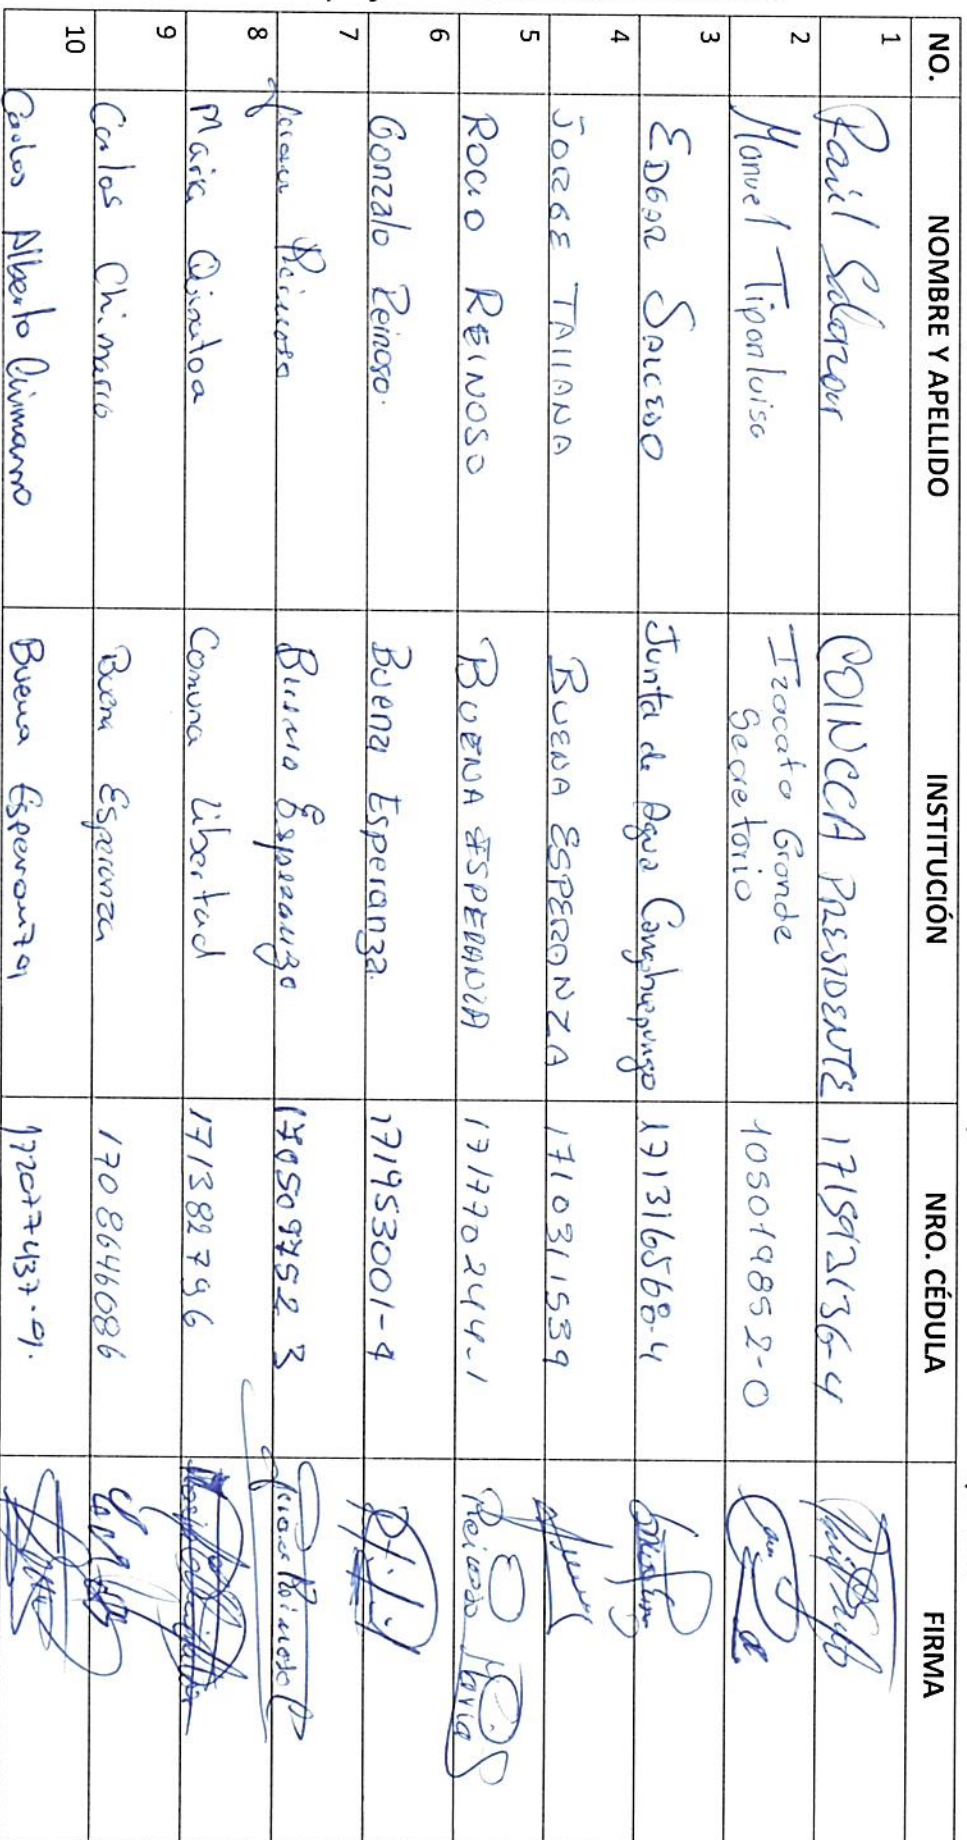 NO. NOMBRE Y APELLIDO INSTITUCIÓN NRO. CÉDULA FIRMA
1 Raúl Salazar COINCCA PRESIDENTE 171592136-4
2 Manuel Tipanluisa Izacata Grande
Secretario 105019852-0
3 EDGAR SALCEDO Junta de Agua 171316568-4
4 JORGE TAIIANA BUENA ESPERANZA 1710311539
5 ROCIO REINOSO BUENA ESPERANZA 171770244-1 Reinoso María
6 Gonzalo Reinoso. Buena Esperanza. 171953001-4
7 Reinoso Buena Esperanza 170509752 3 Reinoso
8 Maria Quinatoa Comuna Libertad 171382796
9 Carlos Chimarro Buena Esperanza 1708646086
10 Carlos Alberto Chimarro Buena Esperanza 172077437-9.